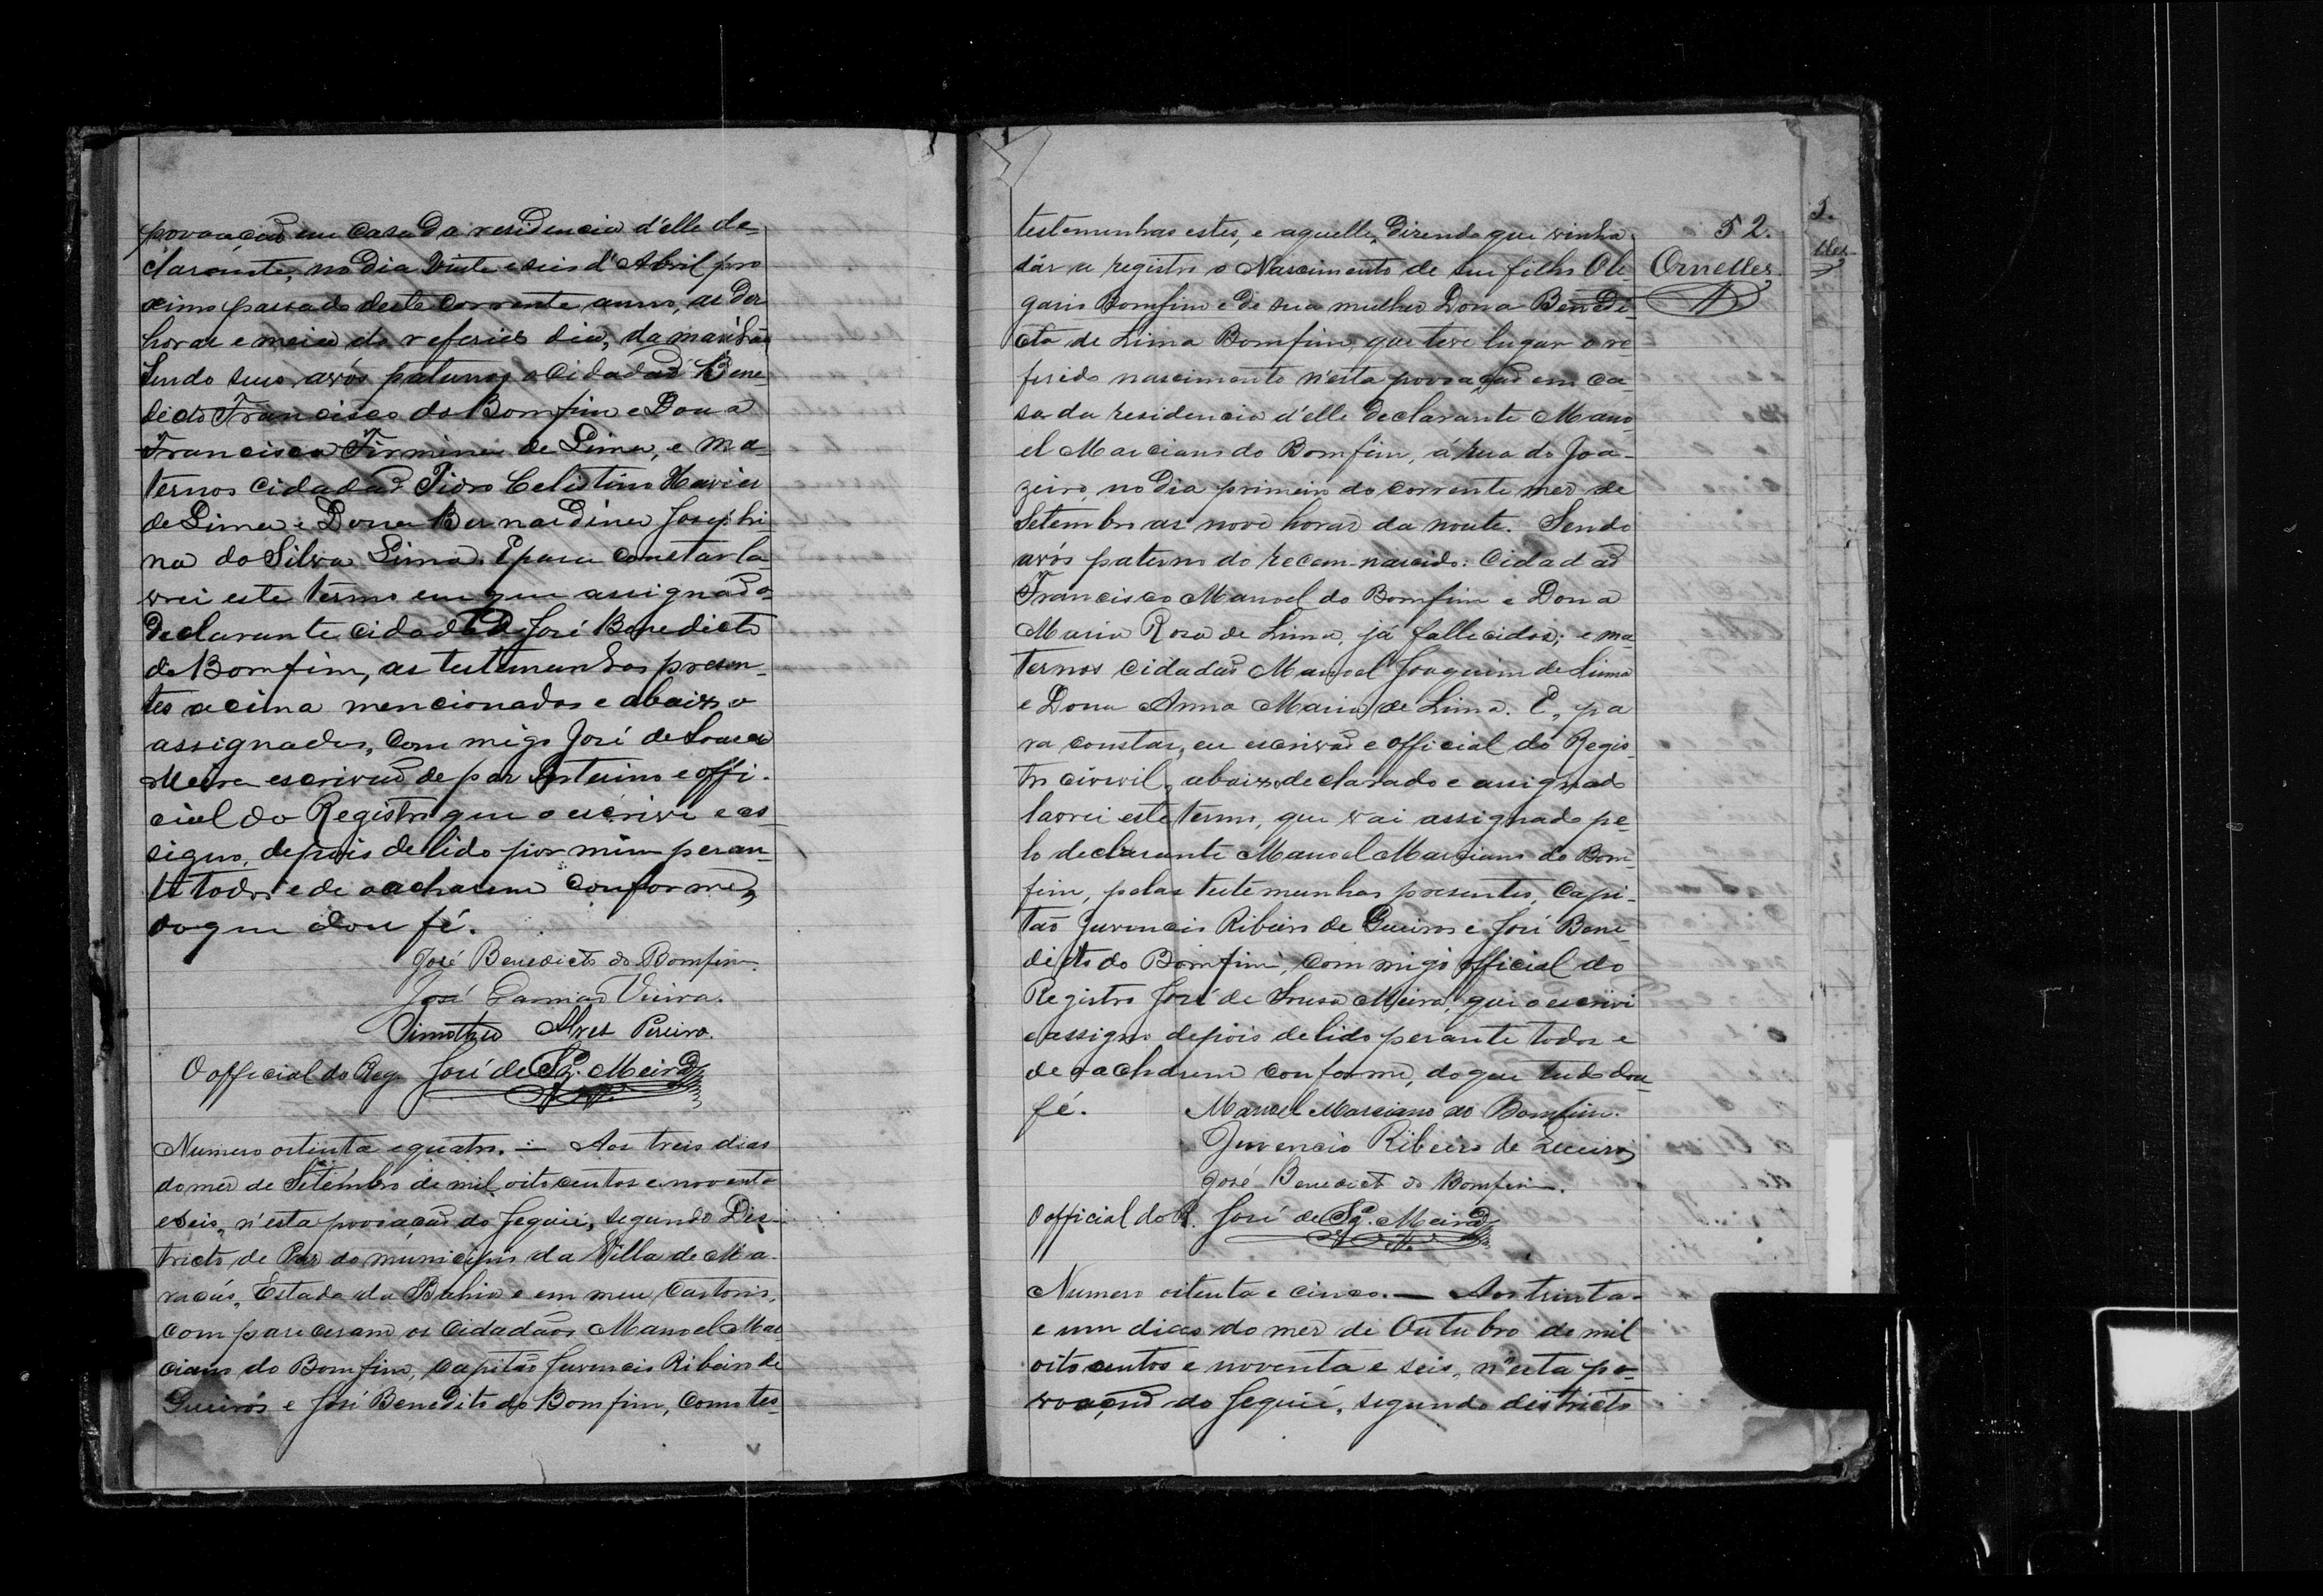 povoação em casa da residencia d'elle de-
clarante, no dia vinte e seis d'Abril pro
ximo passado deste corrente anno, as dez
horas e meia do referido dia, da manhã,
Sendo seus avós paternos o Cidadão Bene-
dicto Francisco do Bomfim e Dona
Francisca Firmina de Lima, e ma-
ternos Cidadão Pedro Celestino Xavier
de Lima e Dona Bernardina Josephi
na da Silva Lima. E para constar la-
vrei este termo em que assigna o
declarante cidadão José Benedicto
do Bomfim, as testemunhas presen-
tes acima mencionadas e abaixo
assignadas, commigo José de Sousa
Meira escrivão de paz interino e offi-
cial do Registro que o escrivi e as-
signo, depois de lido por mim peran-
te todos e de o acharem conforme,
do que dou fé.
José Benedicto do Bomfim.
José Damião Vieira.
Timotheo Alves Pereira.
O official do Reg. José de Sz.ª Meira
Numero oitenta e quatro. — Aos treis dias
do mez de Setembro de mil oito centos e noventa
e seis, n'esta povoação do Jequié, segundo Dis-
tricto de Paz do municipio da Villa de Ma-
racás, Estado da Bahia e em meu Cartorio,
compareceram os Cidadãos Manoel Mar
ciano do Bomfim, Capitão Juvencio Ribeiro de
Queiros e José Benedito do Bomfim, como tes-
52.
testemunhas estes, e aquelle, dizendo que vinha
dár a registro o Nascimento de seu filho Ole
Ornelles
gario Bomfim e de sua mulher Dona Benedi-
cta de Lima Bomfim, que teve lugar o re
ferido nascimento n'esta povoação em ca-
sa da residencia d'elle declarante Mano-
el Marciano do Bomfim, á rua do Joa-
zeiro, no dia primeiro do corrente mez de
Setembro as nove horas da noute. Sendo
avós paterno do recem-nascido: Cidadão
Francisco Manoel do Bomfim e Dona
Maria Rosa de Lima, já fallecidos; e ma-
ternos cidadão Manoel Joaquim de Lima
e Dona Anna Maria de Lima. E, pa
ra constar, eu escrivão e official do Regis-
tro civil, abaixo declarado e assignado
lavrei este termo, que vai assignado pe-
lo declarante Manoel Marciano do Bom-
fim, pelas testemunhas presentes, Capi-
tão Juvencio Ribeiro de Queiros e José Bene-
dicto do Bomfim, commigo official do
Registro José de Sousa Meira, que o escrivi
e assigno, depois de lido perante todos e
de o acharem conforme, do que tudo dou
fé. Manoel Marciano do Bomfim.
Juvencio Ribeiro de Queiros
José Benedicto do Bomfim.
O official do R. José de Sz.ª Meira
Numero oitenta e cinco. — Aos trinta
e um dias do mez de Outubro de mil
oito centos e noventa e seis, n'esta po-
voação do Jequié, segundo districto